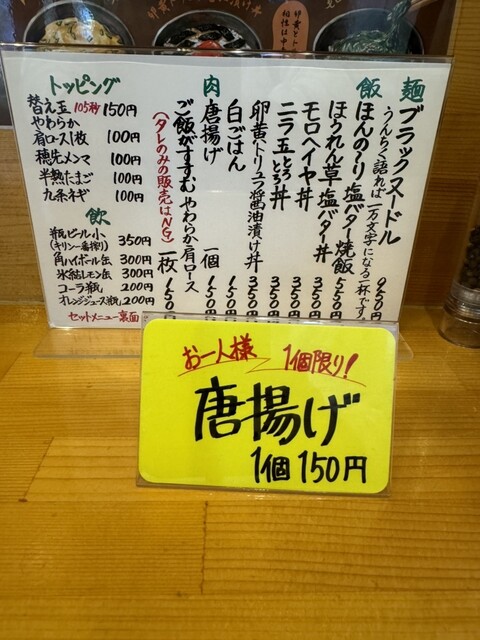 麺
ブラックヌードル 950
うんちく語れば一万文字になる一杯です。
飯
ほんの〜り塩バター焼飯 550
ほうれん草塩バター丼 350
モロヘイヤとろ丼 350
ニラ玉とろとろ丼 350
卵黄トリュフ醤油漬け丼 350
白ごはん 150
肉
唐揚げ 一個 150
ご飯がすすむやわらか肩ロース 一枚 150
(タレのみの販売はNG)
トッピング
替え玉 105秒 150円
やわらか肩ロース1枚 100円
穂先メンマ 100円
半熟たまご 100円
九条ネギ 100円
飲
瓶ビール小(キリン一番搾り) 350円
角ハイボール缶 300円
氷結レモン缶 300円
コーラ瓶 200円
オレンジジュース瓶 200円
セットメニュー裏面
お一人様 1個限り!
唐揚げ
1個150円